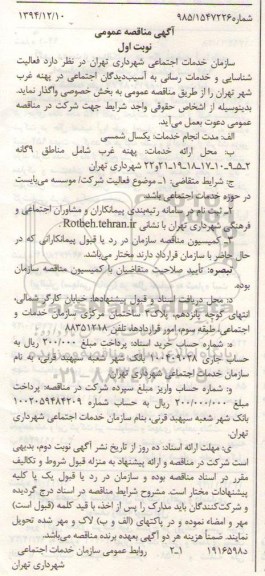 شماره ۹۸۵/۱۵۴۷۲۲۶ ۱۳۹۴/۱۲/۱۰
آگهی مناقصه عمومی
نوبت اول
سازمان خدمات اجتماعی شهرداری تهران در نظر دارد فعالیت
شناسایی و خدمات رسانی به آسیب‌دیدگان اجتماعی در پهنه غرب
شهر تهران را از طریق مناقصه عمومی به بخش خصوصی واگذار نماید.
بدینوسیله از اشخاص حقوقی واجد شرایط جهت شرکت در مناقصه
عمومی دعوت بعمل می‌آید.
الف: مدت انجام خدمات: یکسال شمسی
ب: محل ارائه خدمات: پهنه غرب شامل مناطق ۹گانه
۲ـ۵ـ۹ـ۱۰ـ۱۷ـ۱۸ـ۱۹ـ۲۱و۲۲ شهرداری تهران
ج: شرایط متقاضی: ۱ـ موضوع فعالیت شرکت/ موسسه می‌بایست
در حوزه خدمات اجتماعی باشد.
سامانه رتبه‌بندی پیمانکاران و مشاوران اجتماعی و
فرهنگی شهرداری تهران با نشانی Rotbeh.tehran.ir
کمیسیون مناقصه سازمان در رد یا قبول پیمانکارانی که در
حال حاضر با سازمان قرارداد دارند مختار می‌باشد.
تبصره: تأیید صلاحیت متقاضیان با کمیسیون مناقصه سازمان
بوده.
د: محل دریافت اسناد و قبول پیشنهادها: خیابان کارگر شمالی،
انتهای کوچه پانزدهم، پلاک۲ ساختمان مرکزی سازمان خدمات و
اجتماعی، طبقه سوم، امور قراردادها، تلفن ۸۸۳۵۱۲۱۸
ه: شماره حساب خرید اسناد: پرداخت مبلغ ۲۰۰/۰۰۰ ریال به
حساب جاری ۱۰۰۴۰۹۰۲۸ بانک شهر شعبه سپهبد قرنی، به نام
سازمان خدمات اجتماعی شهرداری تهران
و: شماره حساب واریز مبلغ سپرده شرکت در مناقصه: پرداخت
مبلغ ۲۰۰/۰۰۰/۰۰۰ ریال به حساب شماره ۱۰۰۲۰۵۹۴۸۴۲۰۹
بانک شهر شعبه سپهبد قرنی، بنام سازمان خدمات اجتماعی شهرداری
تهران.
ی: مهلت ارائه اسناد: ده روز از تاریخ نشر آگهی نوبت دوم، بدیهی
است شرکت در مناقصه و ارائه پیشنهاد به منزله قبول شروط و تکالیف
مقرر در اسناد مناقصه بوده و سازمان در رد یا قبول یک یا کلیه
پیشنهادات مختار است. مشروح شرایط مناقصه در اسناد درج گردیده
و شرکت‌کنندگان باید مدارک را پس از اخذ، با قید کلمه (قبول است)
مهر و امضاء نموده و در پاکتهای (الف و ب) لاک و مهر شده تحویل
نمایند. ضمناً هزینه هر دو آگهی بعهده برنده مناقصه می‌باشد.
۱۹۱۶۵۹۸د ۱ـ۲ روابط عمومی سازمان خدمات اجتماعی
شهرداری تهران